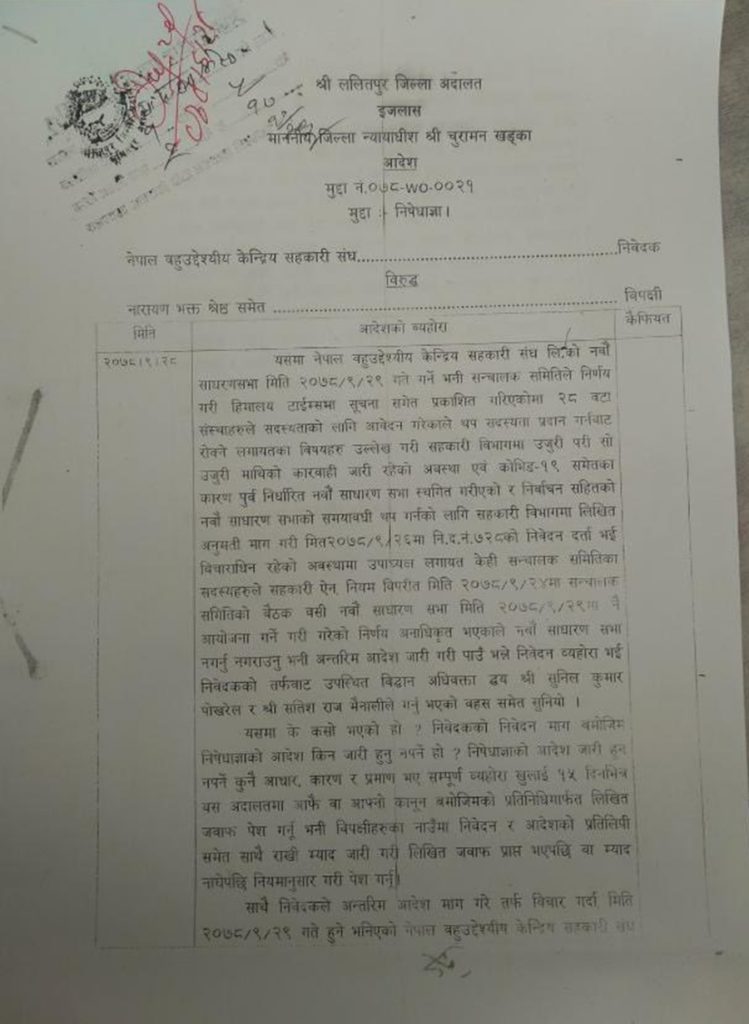 श्री ललितपुर जिल्ला अदालत
इजलास
माननीय जिल्ला न्यायाधीश श्री चुरामन खड्का
आदेश
मुद्दा नं.०७८-WO-००२१
मुद्दा :- निषेधाज्ञा।
नेपाल वहुउद्देश्यीय केन्द्रिय सहकारी संघ............निवेदक
विरुद्ध
नारायण भक्त श्रेष्ठ समेत ............ विपक्षी
मिति आदेशको व्यहोरा कैफियत
२०७८।९।२८ यसमा नेपाल वहुउद्देश्यीय केन्द्रिय सहकारी संघ लि.को नवौं
साधरणसभा मिति २०७८/९/२९ गते गर्ने भनी सन्चालक समितिले निर्णय
गरी हिमालय टाईम्समा सूचना समेत प्रकाशित गरिएकोमा २८ वटा
संस्थाहरुले सदस्यताको लागि आवेदन गरेकाले थप सदस्यता प्रदान गर्नबाट
रोक्ने लगायतका विषयहरु उल्लेख गरी सहकारी विभागमा उजुरी परी सो
उजुरी माथिको कारवाही जारी रहेको अवस्था एवं कोभिड-१९ समेतका
कारण पुर्व निर्धारित नवौं साधारण सभा स्थगित गरीएको र निर्वाचन सहितको
नवौं साधारण सभाको समयावधी थप गर्नको लागि सहकारी विभागमा लिखित
अनुमती माग गरी मित२०७८/९/२६मा नि.द.नं.७२८को निवेदन दर्ता भई
विचाराधिन रहेको अवस्थामा उपाध्यक्ष लगायत केही सन्चालक समितिका
सदस्यहरुले सहकारी ऐन, नियम विपरीत मिति २०७८/९/२४मा सन्चालक
समितिको बैठक वसी नवौं साधारण सभा मिति २०७८/९/२९मा नै
आयोजना गर्ने गरी गरेको निर्णय अनाधिकृत भएकाले नवौं साधारण सभा
नगर्नु नगराउनु भनी अन्तरिम आदेश जारी गरी पाउँ भन्ने निवेदन व्यहोरा भई
निवेदकको तर्फवाट उपस्थित विद्वान अधिवक्ता द्वय श्री सुनिल कुमार
पोखरेल र श्री सतिश राज मैनालीले गर्नु भएको वहस समेत सुनियो ।
यसमा के कसो भएको हो ? निवेदकको निवेदन माग बमोजिम
निषेधाज्ञाको आदेश किन जारी हुनु नपर्ने हो ? निषेधाज्ञाको आदेश जारी हुनु
नपर्ने कुनै आधार, कारण र प्रमाण भए सम्पूर्ण व्यहोरा खुलाई १५ दिनभित्र
यस अदालतमा आफै वा आफ्नो कानून बमोजिमको प्रतिनिधिमार्फत लिखित
जवाफ पेश गर्नू भनी विपक्षीहरुका नाउँमा निवेदन र आदेशको प्रतिलिपी
समेत साथै राखी म्याद जारी गरी लिखित जवाफ प्राप्त भएपछि वा म्याद
नाघेपछि नियमानुसार गरी पेश गर्नू।
साथै निवेदकले अन्तरिम आदेश माग गरे तर्फ विचार गर्दा मिति
२०७८/९/२९ गते हुने भनिएको नेपाल वहुउद्देश्यीय केन्द्रिय सहकारी संघ